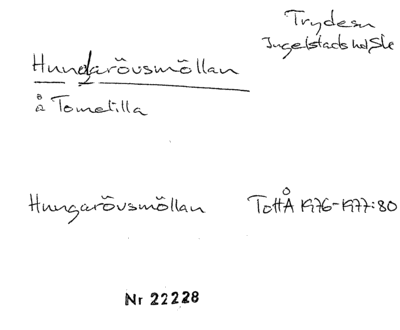 Trydes sn
Ingelstads hd Sk
Hundarövsmöllan
å Tomelilla
Hungarövsmöllan TottÅ 1976-1977:80
Nr 22228